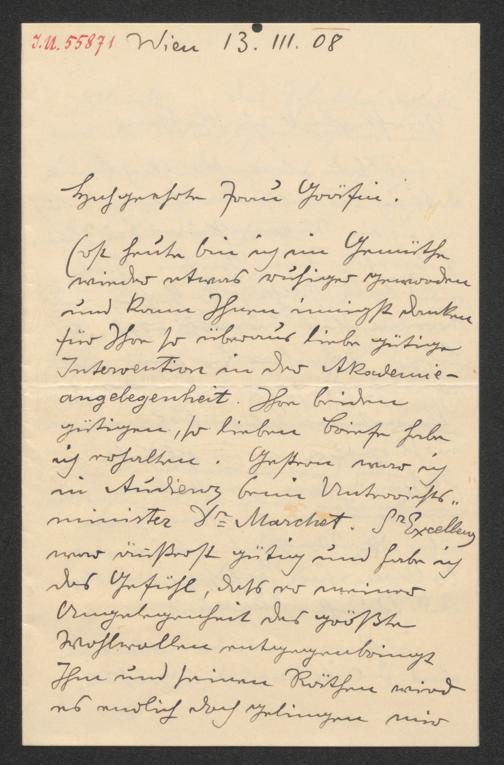 J.N. 55871 Wien 13. III. 08
Hochgeehrte Frau Gräfin!
Erst heute bin ich im Gemüthe
wieder etwas ruhiger geworden
und kann Ihnen innigst danken
für Ihre so überaus liebe gütige
Intervention in der Akademie-
angelegenheit. Ihre beiden
gütigen, so lieben Briefe habe
ich erhalten. Gestern war ich
in Audienz beim Unterrichts-
minister Dr Marchet. Sr Excellenz
war äußerst gütig und habe ich
das Gefühl, daß er meiner
Angelegenheit das größte
Wohlwollen entgegenbringt
Ihm und seinen Räthen wird
es endlich doch gelingen mir